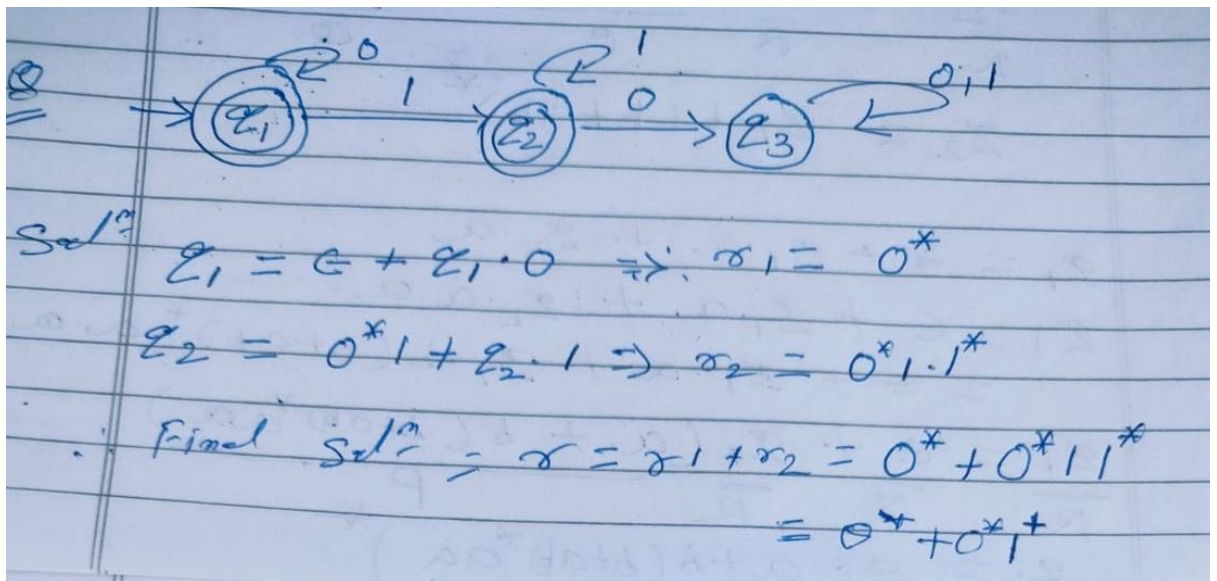 Q
0 1 0,1
1 0
q1 q2 q3
Solⁿ
q1 = ϵ + q1·0 ⇒ r1 = 0*
q2 = 0*1 + q2·1 ⇒ r2 = 0*1·1*
∴ Final Solⁿ = r = r1 + r2 = 0* + 0*11*
= 0* + 0*1⁺